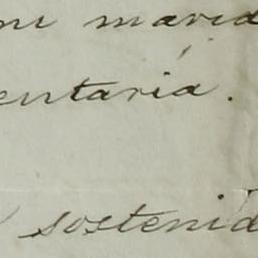 mi marid
entaría.
sostenid